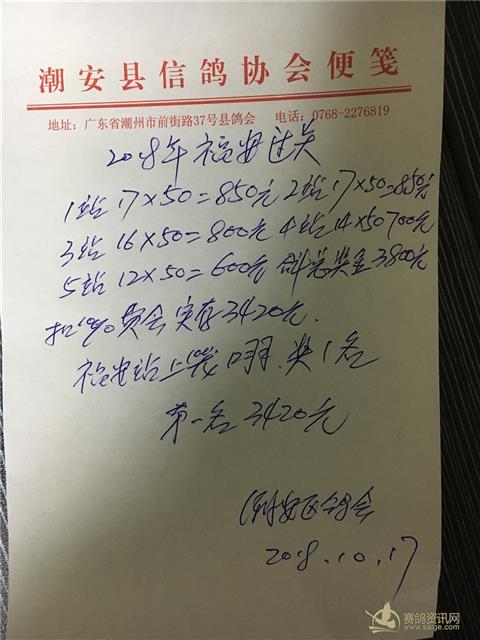 潮安县信鸽协会便笺
地址：广东省潮州市前街路37号县鸽会 电话：0768-2276819
2018年福安过关
1站17×50=850元 2站17×50=850元
3站16×50=800元 4站14×50 700元
5站12×50=600元 总奖金3800元
扣10%费会实存3420元.
福安站上 羽.奖1名
第一名3420元
潮安区鸽会
2018.10.17
赛鸽资讯网
www.saige.com